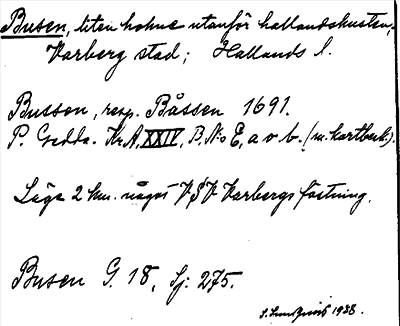 Busen, liten holme utanför hallandskusten,
Varberg stad; Hallands l.
Bussen, resp. Båssen 1691.
P. Gedda. Kr.A, XXIV, B, No E, a v b. (m. kartbeskr.).
Läge 2 km. något V§V Varbergs fästning.
Busen G. 18, Sj: 275.
1938.